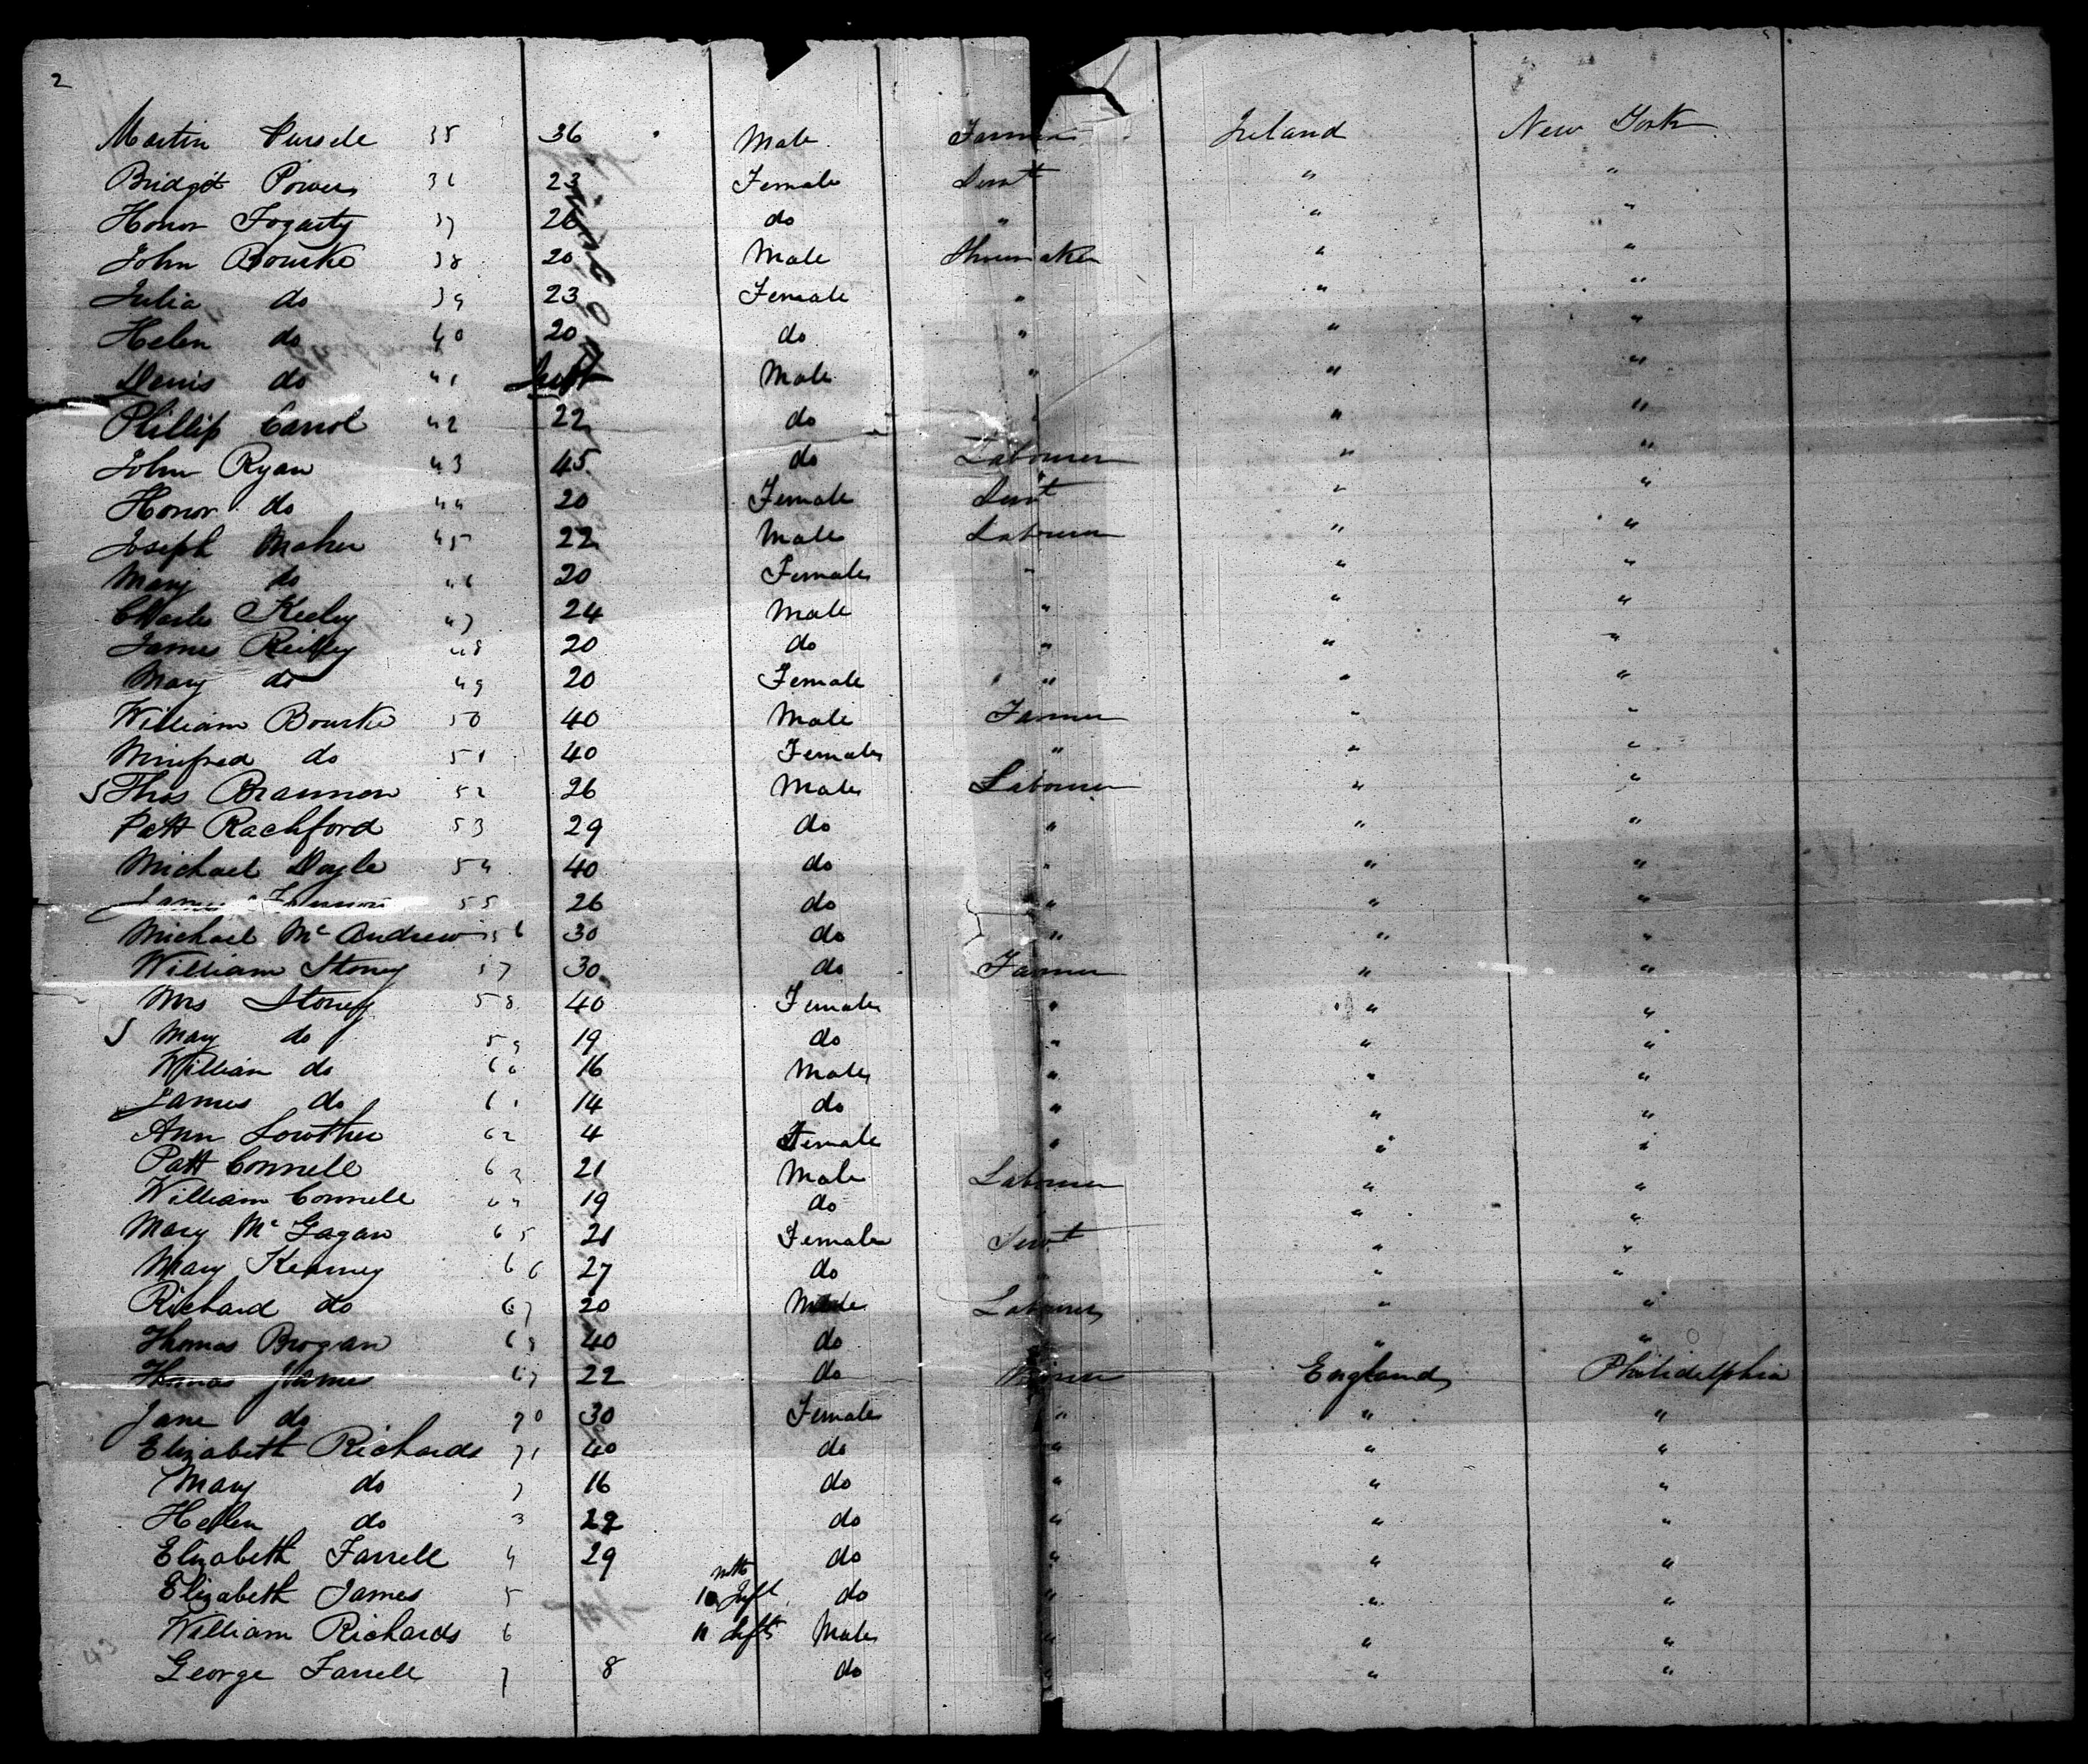 2
Martin Pursele 35 36 Male Farmer Ireland New York
Bridget Powers 36 23 Female Servt " "
Honor Fogarty 37 26 do " " "
John Bourke 38 20 Male Shoemaker " "
Julia do 39 23 Female " " "
Helen do 40 20 do " " "
Denis do 41 Inft Male " " "
Phillip Carrol 42 22 do " " "
John Ryan 43 45 do Labourer " "
Honor do 44 20 Female Servt " "
Joseph Maher 45 22 Male Labourer " "
Mary do 46 20 Female " " "
Charles Keeley 47 24 Male " " "
James Reilley 48 20 do " " "
Mary do 49 20 Female " " "
William Bourke 50 40 Male Farmer " "
Winifred do 51 40 Female " " "
Thos Brannon 52 26 Male Labourer " "
Patt Rachford 53 29 do " " "
Michael Doyle 54 40 do " " "
James 55 26 do " " "
Michael Mc Andrew 56 30 do " " "
William Stoney 57 30 do Farmer " "
Mrs Stoney 58 40 Female " " "
Mary do 59 19 do " " "
William do 60 16 Male " " "
James do 61 14 do " " "
Ann Lowther 62 4 Female " " "
Patt Connell 63 21 Male Labourer " "
William Connell 64 19 do " " "
Mary Mc Gagan 65 21 Female Servt " "
Mary Kearney 66 27 do " " "
Richard do 67 20 Male Labourer " "
Thomas Brogan 68 40 do " "
Thomas James 69 22 do Miner England Philidelphia
Jane do 70 30 Female " " "
Elizabeth Richards 71 40 do " " "
Mary do 16 do " " "
Hellen do 3 22 do " " "
Elizabeth Farrell 4 29 do " " "
Elizabeth James 5 10 mths Inft do " " "
William Richards 6 11 Inft Male " " "
George Farrell 7 8 do " " "